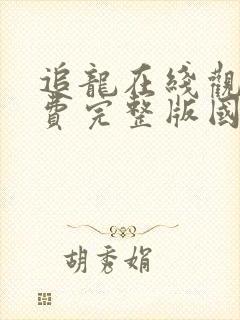 追龍在綫觀
費完整版國
胡秀娟